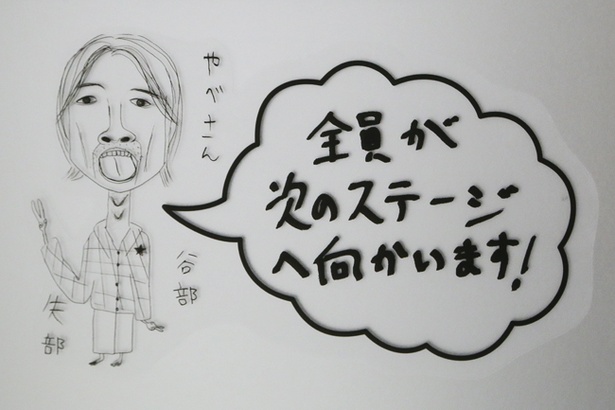 やべさん
谷部
矢部
全員が
次のステージ
へ向かいます!